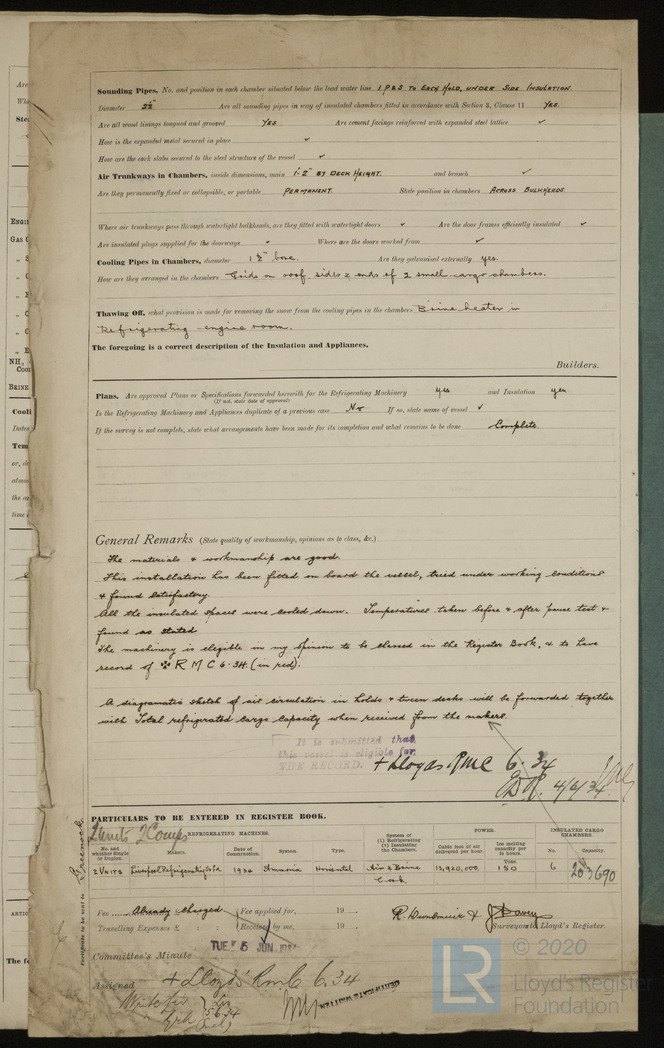 Sounding Pipes, No. and position in each chamber situated below the load water line 1 P & S TO EACH HOLD, UNDER SIDE INSULATION.
Diameter 2½" Are all sounding pipes in way of insulated chambers fitted in accordance with Section 3, Clause 11 YES.
Are all wood linings tongued and grooved YES Are cement facings reinforced with expanded steel lattice ✓
How is the expanded metal secured in place ✓
How are the cork slabs secured to the steel structure of the vessel ✓
Air Trunkways in Chambers, inside dimensions, main 1'-2" BY DECK HEIGHT. and branch ✓
Are they permanently fixed or collapsible, or portable PERMANENT. State position in chambers ACROSS BULKHEADS.
Where air trunkways pass through watertight bulkheads, are they fitted with watertight doors ✓ Are the door frames efficiently insulated ✓
Are insulated plugs supplied for the doorways ✓ Where are the doors worked from ✓
Cooling Pipes in Chambers, diameter 1½" bore. Are they galvanised externally yes.
How are they arranged in the chambers Grids on roof sides & ends of 2 small cargo chambers.
Thawing Off, what provision is made for removing the snow from the cooling pipes in the chambers Brine heater in
Refrigerating engine room.
The foregoing is a correct description of the Insulation and Appliances.
Builders.
Plans. Are approved Plans or Specifications forwarded herewith for the Refrigerating Machinery yes and Insulation yes
(If not, state date of approval)
Is the Refrigerating Machinery and Appliances duplicate of a previous case No If so, state name of vessel ✓
If the survey is not complete, state what arrangements have been made for its completion and what remains to be done Complete
General Remarks (State quality of workmanship, opinions as to class, &c.)
The materials & workmanship are good.
This installation has been fitted on board the vessel, tried under working conditions
& found satisfactory.
All the insulated spaces were cooled down. Temperatures taken before & after pause test &
found as stated
The machinery is eligible in my opinion to be classed in the Register Book, & to have
record of ✠ R M C 6.34. (in red).
A diagramatic sketch of air circulation in holds & tween decks will be forwarded together
with Total refrigerated cargo capacity when received from the makers.
It is submitted that
this vessel is eligible for
THE RECORD. + Lloyds. RMC 6.34
4/6/34
PARTICULARS TO BE ENTERED IN REGISTER BOOK.
2 Units 2 Comps REFRIGERATING MACHINES. POWER. INSULATED CARGO CHAMBERS.
No. and whether Single or Duplex. Makers. Date of Construction. System. Type. System of (1) Refrigerating (2) Insulating the Chambers. Cubic feet of air delivered per hour. Ice melting capacity per 24 hours. No. Capacity.
Tons.
2 UNITS Liverpool Refrigerating Co Ld 1934 Ammonia Horizontal Air & Brine 13,920,000 150 6 203690
Cork
Greenock.
Certificate to be sent to
Fee Already charged Fee applied for, 19
Travelling Expenses £ : : Received by me, 19
R. Dunsmuir & J Davey
Surveyor to Lloyd's Register.
TUE. 5 JUN 1934
Committee's Minute
Assigned + Lloyd's RMC 6.34
Write for
5.6.34
CERTIFICATE WRITTEN
LR
© 2020
Lloyd's Register
Foundation